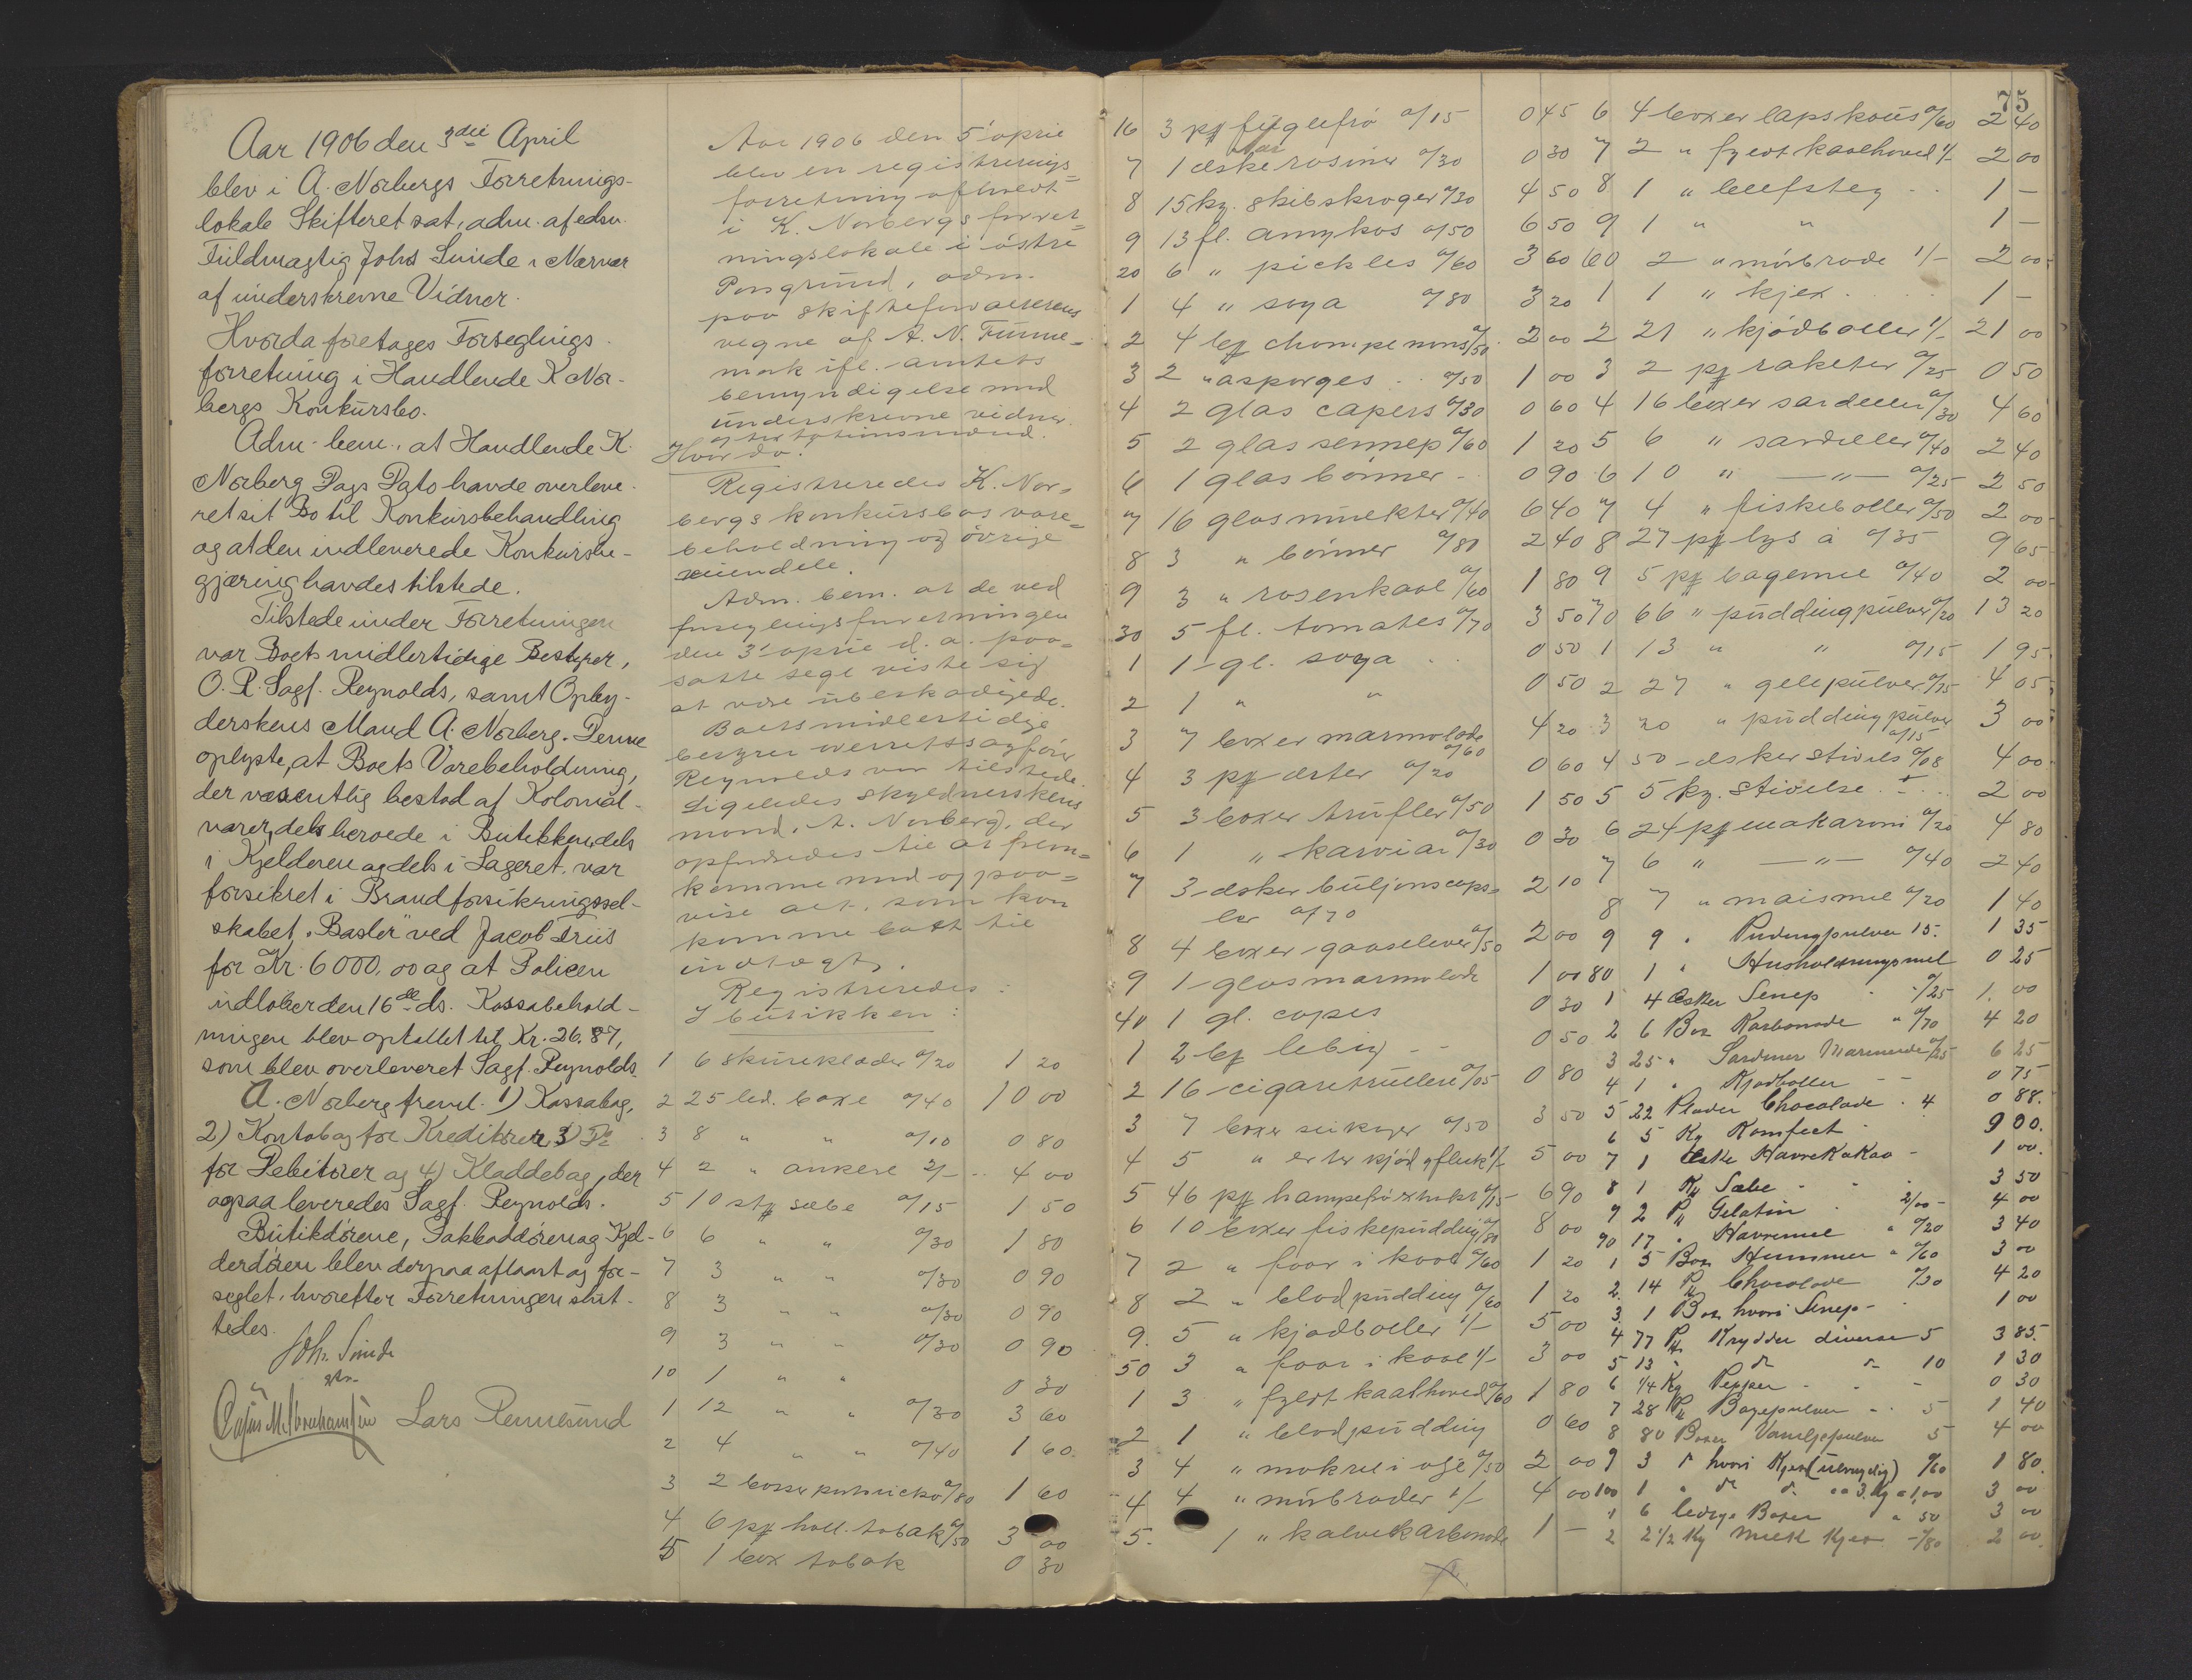 Aar 1906 den 3die April
blev i A. Norbergs Forretnings-
lokale Skifteret sat, adm. af edsv.
Fuldmægtig Johs Sunde i Nærvær
af underskrevne Vidner.
Hvorda foretages Forseglings-
forretning i Handlende K Nor-
bergs Konkursbo.
Adm. bem., at Handlende K.
Norberg Dags Dato havde overleve-
ret sit Bo til Konkursbehandling
og at den indleverede Konkursbe-
gjæring havdes tilstede.
Tilstede under Forretningen
var Boets midlertidige Bestyrer,
O. R. Sagf. Reynolds, samt Opby-
derskens Mand A. Norberg. Denne
oplyste, at Boets Varebeholdning,
der væsentlig bestod af Kolonial-
varer, dels beroede i Butikken, dels
i Kjelderen og dels i Lageret, var
forsikret i Brandforsikringssel-
skabet "Basler" ved Jacob Friis
for Kr. 6000,00 og at Policen
udløber den 16de ds. Kassabehold-
ningen blev optællet til Kr. 26.87,
som blev overleveret Sagf. Reynolds.
A. Norberg freml. 1) Kassabog,
2) Kontobog for Kreditorer 3) Do
for Debitorer og 4) Kladdebog, der
ogsaa leveredes Sagf. Reynolds.
Butikdørene, Pakboddøren og Kjel-
derdøren blev derpaa aflaast og for-
seglet, hvorefter Forretningen slut-
tedes.
Joh. Sunde
Lars Rennesund
Aar 1906 den 5' april
blev en registrerings-
forretning afholdt
i K. Norbergs forret-
ningslokale i østre
Porsgrund, adm.
paa skifteforvalterens
vegne af A. N. Finne-
mark ifl. amtets
bemyndigelse med
underskrevne vidner
og taxationsmænd.
Hvor da:
Registreredes K. Nor-
bergs konkursbos vare-
beholdning og øvrige
eiendele.
Adm. bem. at de ved
forseglingsforretningen
den 3' april d. a. paa-
satte segl viste sig
at være ubeskadigede.
Boets midlertidige
bestyrer overretssagfører
Reynolds var tilstede
Ligeledes skyldnerskens
mand, A. Norberg, der
opfordredes til at frem-
komme med og paa-
vise alt, som kan
komme boet til
indtægt.
Registreredes:
I butikken:
1 6 skureklæder a/20 1 20
2 25 led. boxe a/40 10 00
3 8 " " a/10 0 80
4 2 " ankere 2/- 4 00
5 10 stk sæbe a/15 1 50
6 6 " " a/30 1 80
7 3 " " a/30 0 90
8 3 " " a/30 0 90
9 3 " " a/30 0 90
10 1 " " 0 30
1 12 " " a/30 3 60
2 4 " " a/40 1 60
3 2 boxer a/80 1 60
4 6 pk holl. tobak a/50 3 00
5 1 box tobak 0 30
75
16 3 pk fuglefrø a/15 0 45
7 1 æske rosiner a/30 0 30
8 15 kg. skibskroger a/30 4 50
9 13 fl. amykos a/50 6 50
20 6 " pickles a/60 3 60
1 4 " soya a/80 3 20
2 4 bk a/50 2 00
3 2 " asparges a/50 1 00
4 2 glas capers a/30 0 60
5 2 glas sennep a/60 1 20
6 1 glas bønner 0 90
7 16 glas multer a/40 6 40
8 3 " bønner a/80 2 40
9 3 " rosenkaal a/60 1 80
30 5 fl. tomates a/70 3 50
1 1 gl. soya 0 50
2 1 " " 0 50
3 7 boxer marmelade a/60 4 20
4 3 pk ærter a/20 0 60
5 3 boxer trufler a/50 1 50
6 1 " karviar a/30 0 30
7 3 æsker buljonscaps-
ler a/70 2 10
8 4 boxer gaaselever a/50 2 00
9 1 glas marmelade 1 00
40 1 gl. capes 0 30
1 2 bk lebig 0 50
2 16 cigaretrullere a/05 0 80
3 7 boxer a/50 3 50
4 5 " erter kjød & flesk 1/- 5 00
5 46 pk hampefrø a/15 6 90
6 10 boxer fiskepudding a/80 8 00
7 2 " faar i kaal a/60 1 20
8 2 " blodpudding a/60 1 20
9. 5 " kjødboller 1/- 5 00
50 3 " faar i kaal 1/- 3 00
1 3 " fyldt kaalhoved a/60 1 80
2 1 " blodpudding 0 60
3 4 " makrel i olje a/50 2 00
4 4 " mørbrader 1/- 4 00
5. 1 " kalvekarbonade 1 -
6 4 boxer lapskous a/60 2 40
7 2 " fyldt kaalhoved 1/- 2 00
8 1 " beefsteg 1 -
9 1 " " 1 -
60 2 " mørbrade 1/- 2 00
1 1 " kjex 1 -
2 21 " kjødboller 1/- 21 00
3 2 pk raketer a/25 0 50
4 16 boxer sardeller a/30 4 60
5 6 " sardeller a/40 2 40
6 10 " —"— a/25 2 50
7 4 " fiskeboller a/50 2 00
8 27 pk lys à a/35 9 65
9 5 pk bagemel a/40 2 00
70 66 " puddingpulver a/20 13 20
1 13 " " a/15 1 95
2 27 " gelepulver a/15 4 05
3 20 " puddingpulver a/15 3 00
4 50 æsker stivels a/08 4 00
5 5 kg. stivelse 2 00
6 24 pk makaroni a/20 4 80
7 6 " —"— a/40 2 40
8 7 " maismel a/20 1 40
9 9 " Pudingpulver 15. 1 35
80 1 " Husholdningsmel 0 25
1 4 Æsker Senep a/25 1. 00
2 6 Box Karbonade " a/70 4 20
3 25 " Sardiner Marinerede a/25 6 25
4 1 " Kjødboller 0 75
5 22 Plader Chocolade 4 0 88.
6 5 Kg Komfect 9 00.
7 1 Æske HavreKakao 1 00.
8 1 Kg Sæbe 3 50
9 2 Pk Gelatin 2/00 4 00
90 17 " Havremel " a/20 3 40
1 5 Box Hummer " a/60 3 00
2. 14 Pk Chocolade a/30 4 20
3. 1 Box hvori Senep 1 00
4 77 Pk Krydder diverse 5 3 85.
5 13 " do do 10 1 30
6 1/4 Kg Pepper 0 30
7 28 Pk Bagepulver 5 1 40
8 80 Boxer Vaniljepulver 5 4 00
9 3 do hvori Kjex a/60 1 80.
100 1 " do do 3 Kg a 1,00 3 00
1 6 ledige Boxer a 50 3 00
2 2 1/2 Kg Melk Kjex a/80 2 00.